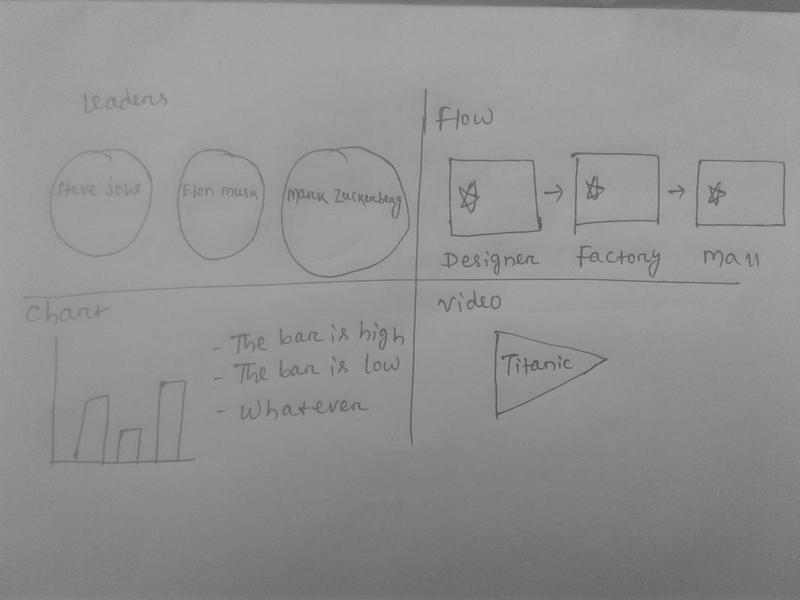 Leaders
Steve jobs
Elon musk
Mark Zuckerberg
Flow
Designer
Factory
Mall
Chart
- The bar is high
- The bar is low
- Whatever
Video
Titanic